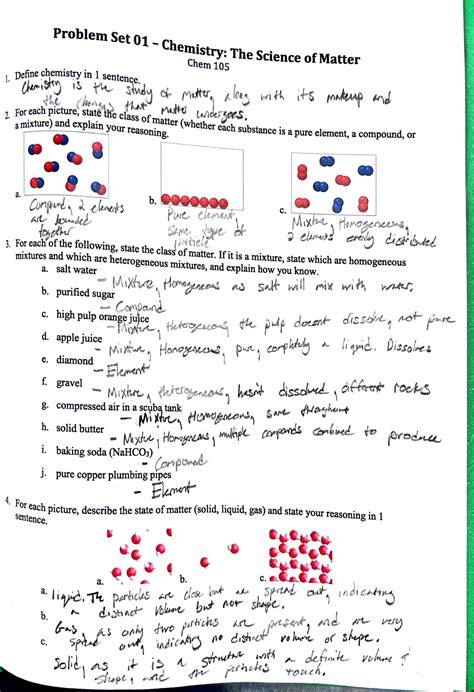 Problem Set 01 – Chemistry: The Science of Matter
Chem 105
1. Define chemistry in 1 sentence.
Chemistry is the study of matter, along with its makeup and
the changes that matter undergoes.
2. For each picture, state the class of matter (whether each substance is a pure element, a compound, or
a mixture) and explain your reasoning.
a. b. c.
Compound, 2 elements
are bounded
together
Pure element,
same type of
particle
Mixture, Homogeneous,
2 elements evenly distributed
3. For each of the following, state the class of matter. If it is a mixture, state which are homogeneous
mixtures and which are heterogeneous mixtures, and explain how you know.
a. salt water
- Mixture, Homogeneous as salt will mix with water.
b. purified sugar
- Compound
c. high pulp orange juice
- Mixture, Heterogeneous, the pulp doesnt dissolve, not pure
d. apple juice
- Mixture, Homogeneous, pure, completely a liquid. Dissolves
e. diamond
- Element
f. gravel
- Mixture, Heterogeneous, hasn't dissolved, different rocks
g. compressed air in a scuba tank
- Mixture, Homogeneous, same throughout
h. solid butter
- Mixture, Homogeneous, multiple compounds combined to produce
i. baking soda (NaHCO3)
- Compound
j. pure copper plumbing pipes
- Element
4. For each picture, describe the state of matter (solid, liquid, gas) and state your reasoning in 1
sentence.
a. b. c.
a. liquid. The particles are close but are spread out, indicating
a distinct volume but not shape.
b. Gas, as only two particles are present, and are very
spread out, indicating no distinct volume or shape.
c. Solid, as it is a structure with a definite volume &
shape, and the particles touch.